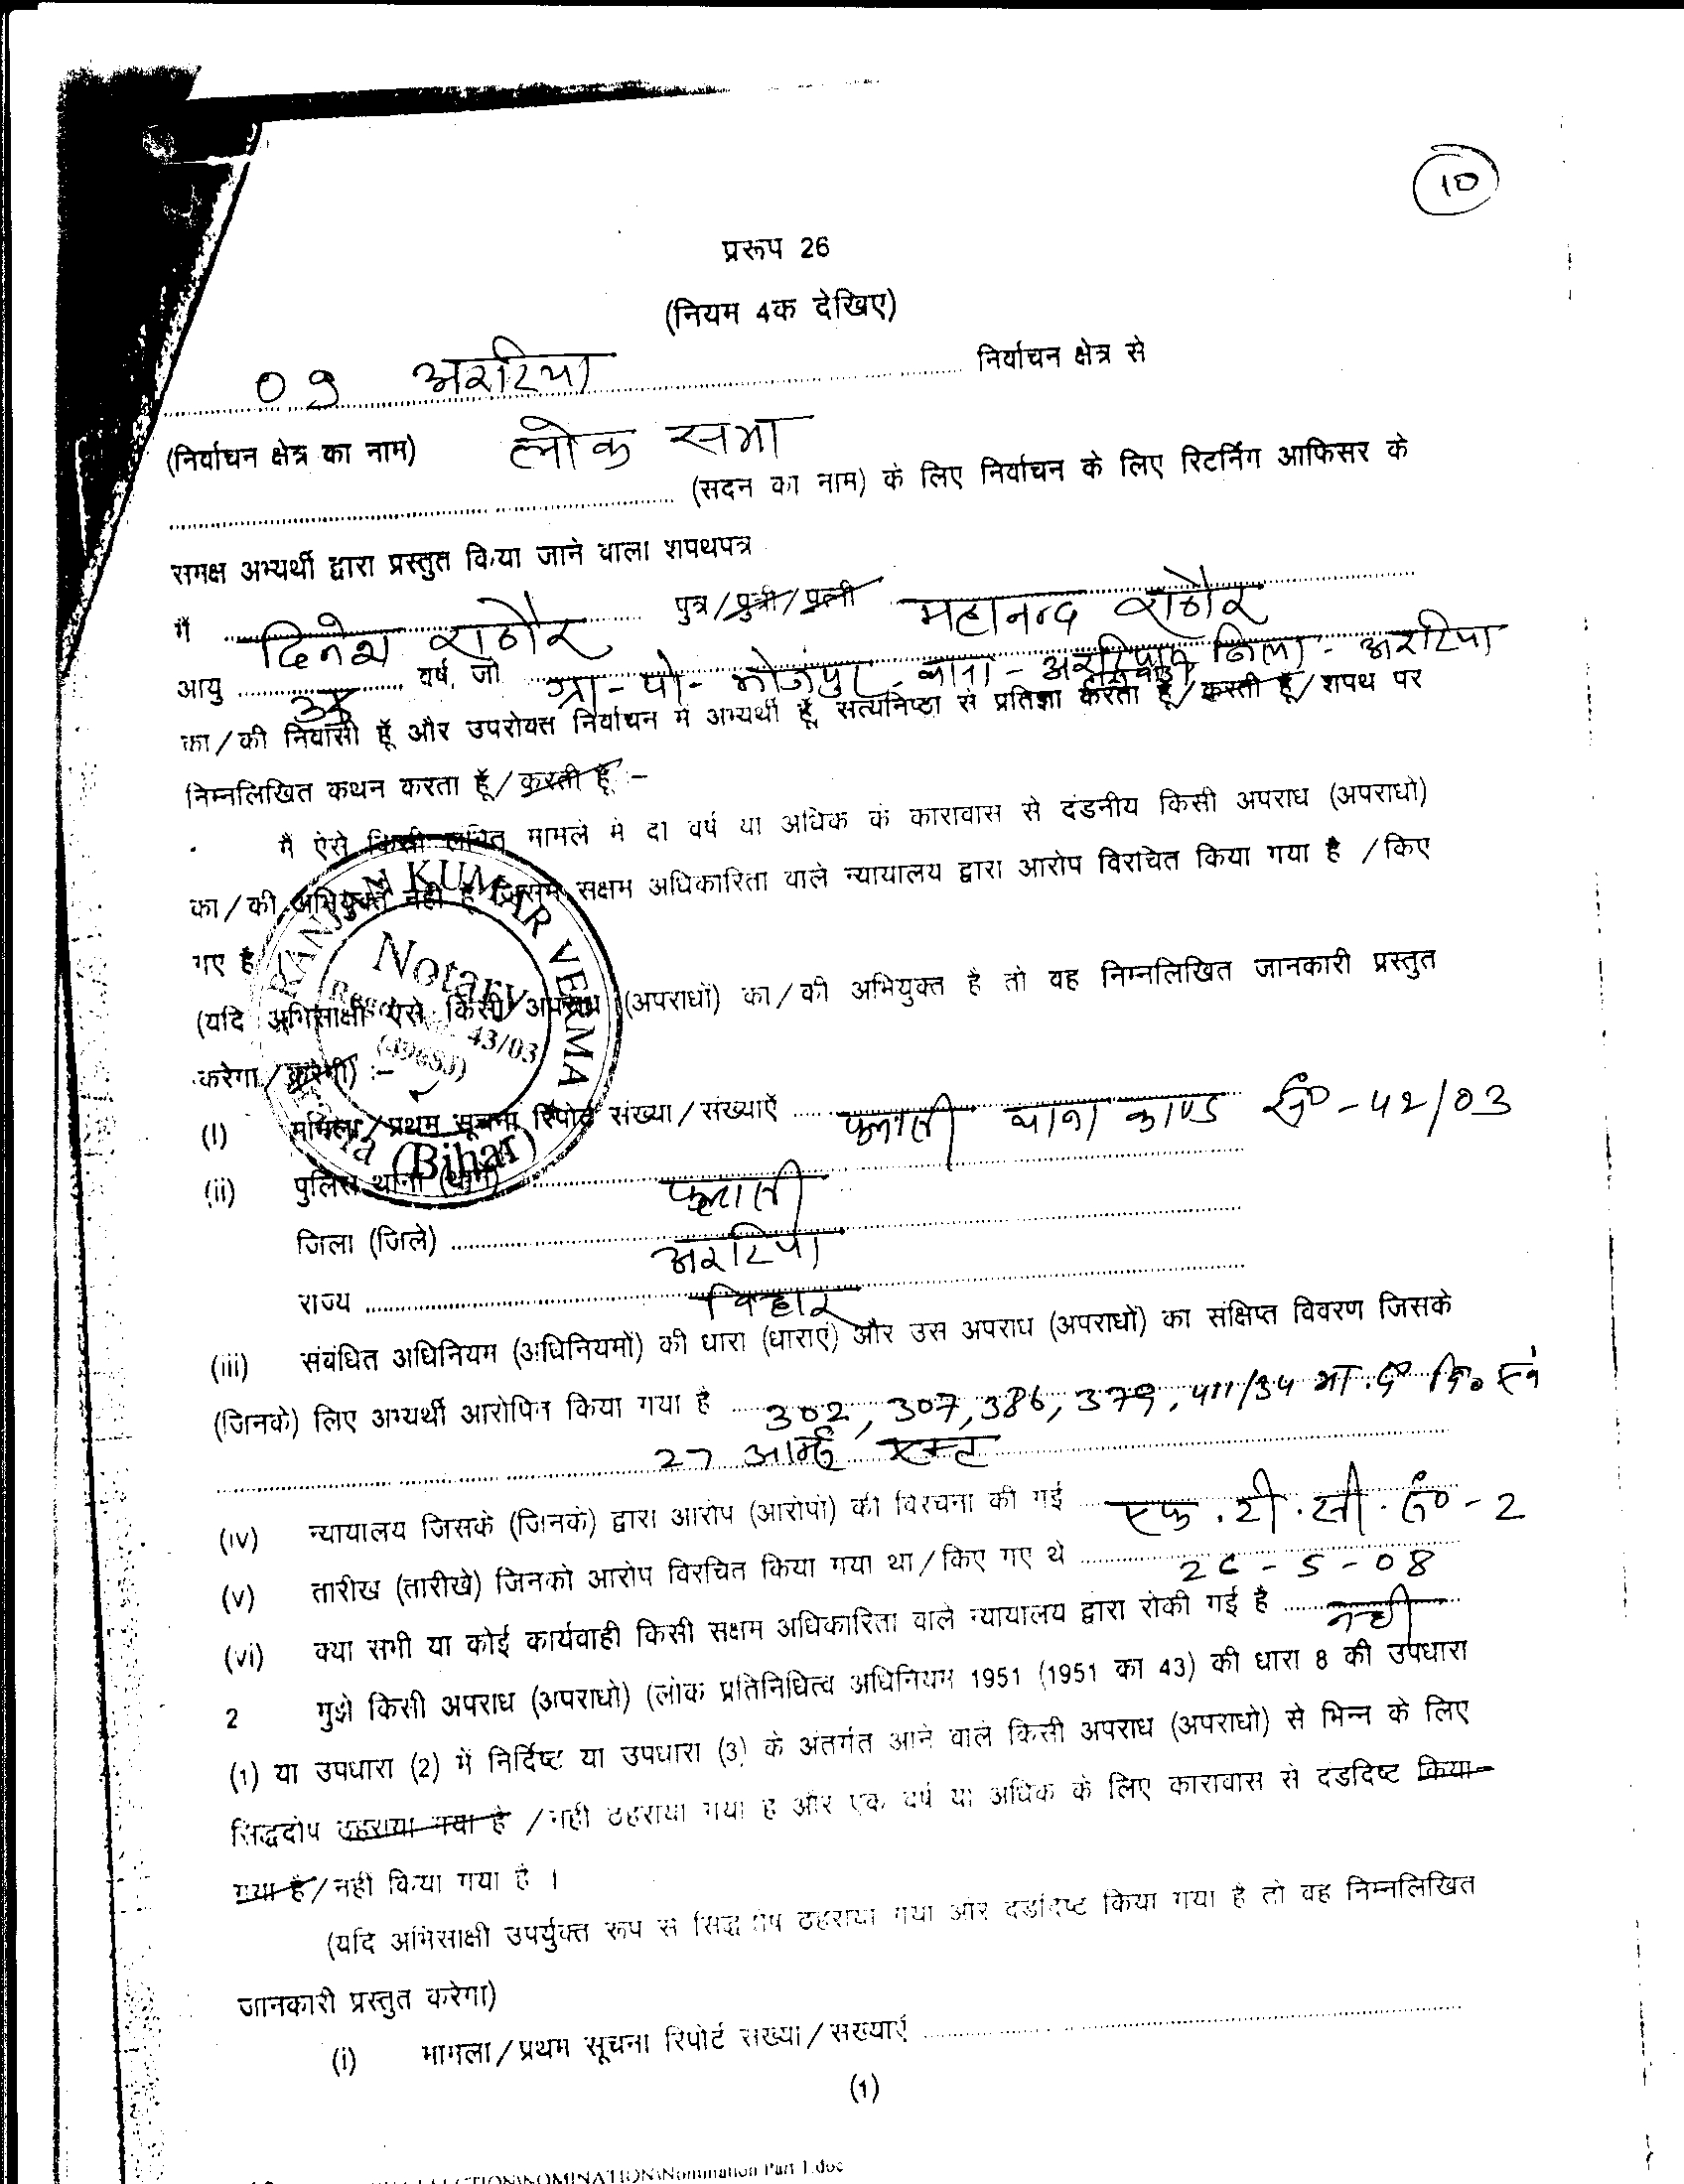 10
प्ररूप 26
(नियम 4क देखिए)
09 अररिया निर्वाचन क्षेत्र से
(निर्वाचन क्षेत्र का नाम) लोक सभा
(सदन का नाम) के लिए निर्वाचन के लिए रिटर्निंग आफिसर के
समक्ष अभ्यर्थी द्वारा प्रस्तुत किया जाने वाला शपथपत्र
मैं दिनेश राठौर पुत्र/पुत्री/पत्नी महानन्द राठौर
आयु वर्ष, जो ग्रा-पो- थाना- जिला- अररिया
का/की निवासी हूँ और उपरोक्त निर्वाचन में अभ्यर्थी हूँ, सत्यनिष्ठा से प्रतिज्ञा करता हूँ/करती हूँ/शपथ पर
निम्नलिखित कथन करता हूँ/करती हूँ :-
मैं ऐसे किसी लंबित मामले में दो वर्ष या अधिक के कारावास से दंडनीय किसी अपराध (अपराधो)
का/की अभियुक्त नहीं हूँ जिसमें सक्षम अधिकारिता वाले न्यायालय द्वारा आरोप विरचित किया गया है /किए
गए हैं
(यदि अभिसाक्षी ऐसे किसी अपराध (अपराधों) का/की अभियुक्त है तो वह निम्नलिखित जानकारी प्रस्तुत
करेगा/करेगी) :-
RANJAN KUMAR VERMA
Notary
43/03
(Bihar)
(i) मामिला/प्रथम सूचना रिपोर्ट संख्या/संख्याएँ थाना काण्ड सं० - 42/03
(ii) पुलिस थाना (थाने)
जिला (जिले) अररिया
राज्य बिहार
(iii) संबंधित अधिनियम (अधिनियमों) की धारा (धाराएं) और उस अपराध (अपराधों) का संक्षिप्त विवरण जिसके
(जिनके) लिए अभ्यर्थी आरोपित किया गया है 302, 307, 386, 379, 411/34 भा.द० वि० एवं
27 आर्म्स एक्ट
(iv) न्यायालय जिसके (जिनके) द्वारा आरोप (आरोपों) की विरचना की गई एफ.टी.सी. सं० - 2
(v) तारीख (तारीखे) जिनको आरोप विरचित किया गया था/किए गए थे 26-5-08
(vi) क्या सभी या कोई कार्यवाही किसी सक्षम अधिकारिता वाले न्यायालय द्वारा रोकी गई है नही
2 मुझे किसी अपराध (अपराधो) (लोक प्रतिनिधित्व अधिनियम 1951 (1951 का 43) की धारा 8 की उपधारा
(1) या उपधारा (2) में निर्दिष्ट या उपधारा (3) के अंतर्गत आने वाले किसी अपराध (अपराधो) से भिन्न के लिए
सिद्धदोष ठहराया गया है /नही ठहराया गया है और एक वर्ष या अधिक के लिए कारावास से दंडदिष्ट किया
गया है/नहीं किया गया है ।
(यदि अभिसाक्षी उपर्युक्त रूप से सिद्धदोष ठहराया गया और दंडादिष्ट किया गया है तो वह निम्नलिखित
जानकारी प्रस्तुत करेगा)
(i) मामला/प्रथम सूचना रिपोर्ट संख्या/संख्याएँ
(1)
NOMINATION\Nomination Part 1.doc